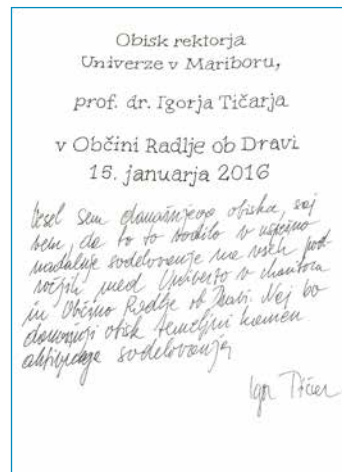 Obisk rektorja
Univerze v Mariboru,
prof. dr. Igorja Tičarja
v Občini Radlje ob Dravi
15. januarja 2016
Vesel sem današnjega obiska, saj
vem, da bo to vodilo v uspešno
nadaljnje sodelovanje na vseh pod-
ročjih med Univerzo v Mariboru
in Občino Radlje ob Dravi. Naj bo
današnji obisk temeljni kamen
sodelovanja
Igor Tičar